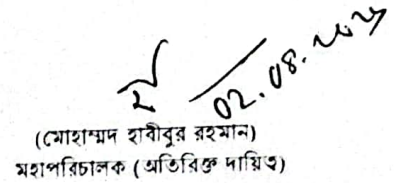 02.04.২০২
(মোহাম্মদ হাবীবুর রহমান)
মহাপরিচালক (অতিরিক্ত দায়িত্ব)